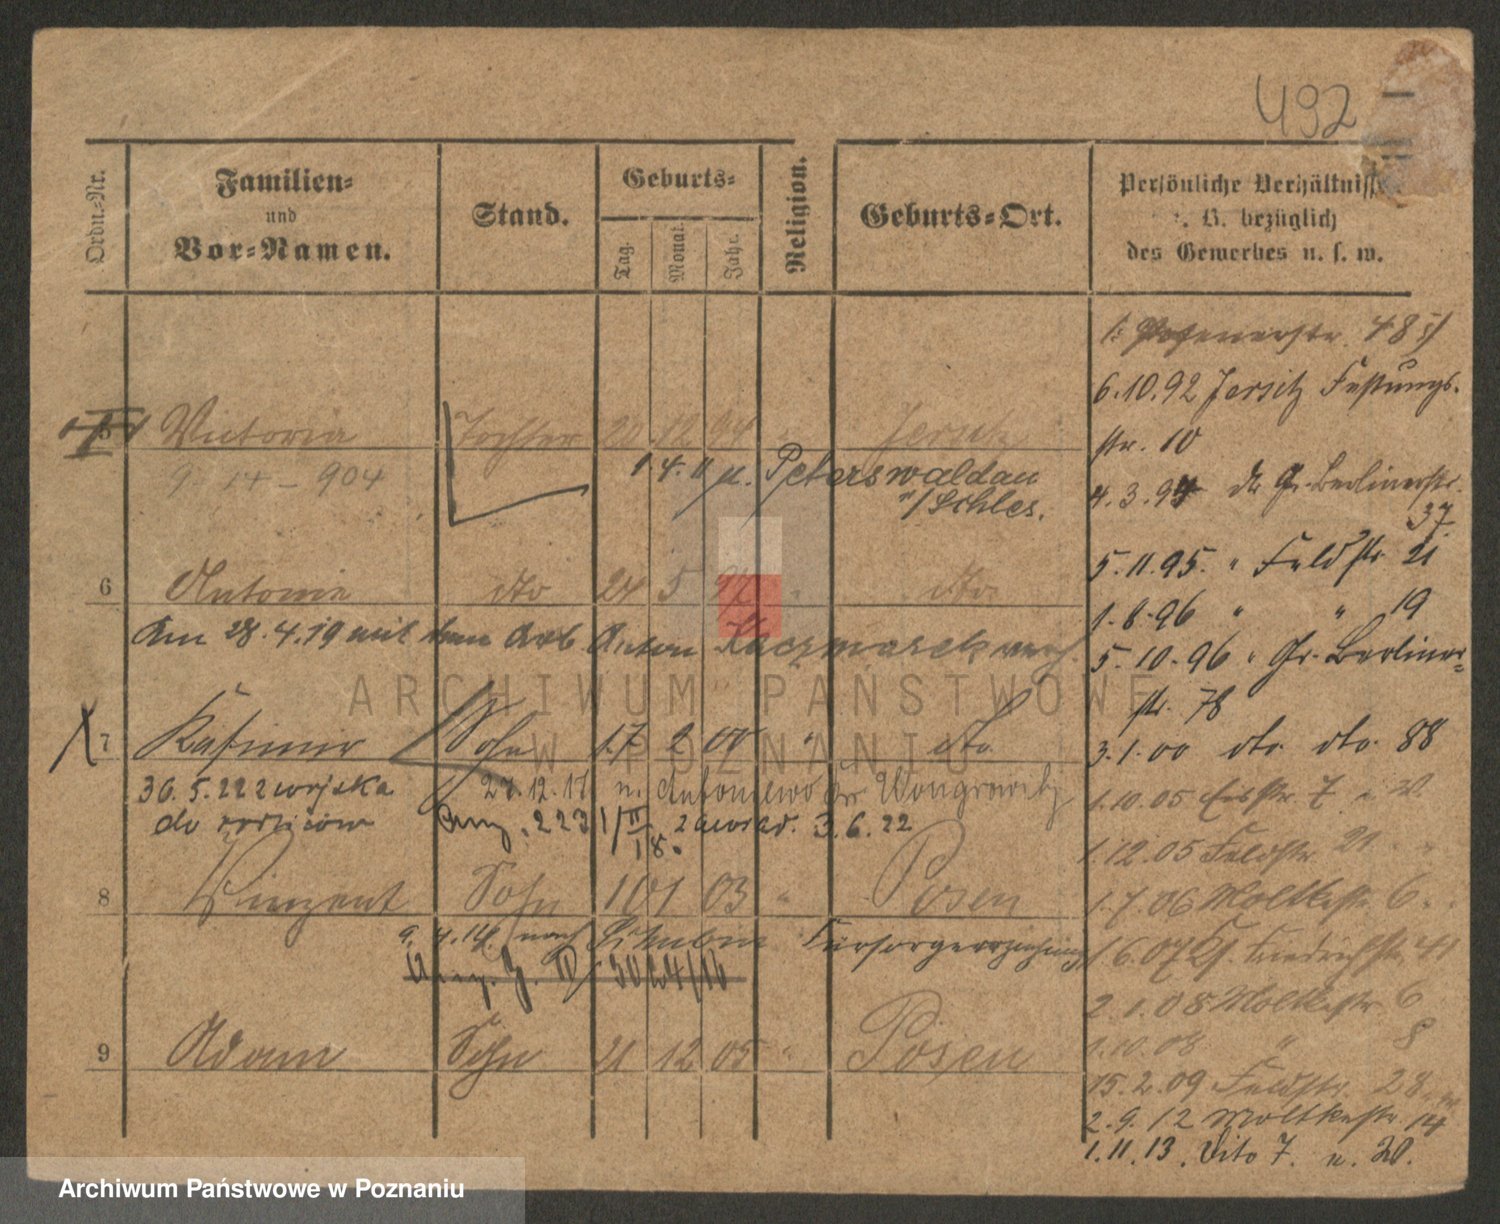 492
Ordn.-Nr.
Familien-
und
Vor-Namen.
Stand.
Geburts-
Tag.
Monat.
Jahr.
Religion.
Geburts-Ort.
Persönliche Verhältnisse
z. B. bezüglich
des Gewerbes u. s. w.
5 Victoria Tochter 20 12 94 " Jersitz
9. 14 - 904
1.4.11 n. Peterswaldau
i/Schles.
6 Antonie dto 24 5 97 " dto.
Am 28.4.19 mit dem Arb Anton Kaczmarek verh.
7 Kasimir Sohn 17 2 00 " dto.
30.5.22 z wojska 27.12.17 n. Antoniewo Kr Wongrowitz
do rodziców 223 1/II 18. zawiad. 3.6.22
8 Vinzent Sohn 10 1 03 " Posen
9.4.14 nach Schubin Fürsorgeerziehung
5024/16
9 Adam Sohn 21 12 05 " Posen
Posenerstr. 48
6.10.92 Jersitz Festungs-
str. 10
4.3.94 Gr. Berlinerstr.
37
5.11.95. " Feldstr. 21
1.8.96 " " 19
5.10.96 " Gr. Berliner-
str. 78
3.1.00 dto. dto. 88
1.10.05 7
1.12.05 Feldstr. 21
1.7.06 Moltkestr. 6
1.6.07 Kf. Friedrichstr. 41
2.1.08 Moltkestr. 6
1.10.08 " 8
15.2.09 Feldstr. 28
2.9.12 Moltkestr. 14
1.11.13. Dito 7. n. 20.
ARCHIWUM PAŃSTWOWE
W POZNANIU
Archiwum Państwowe w Poznaniu